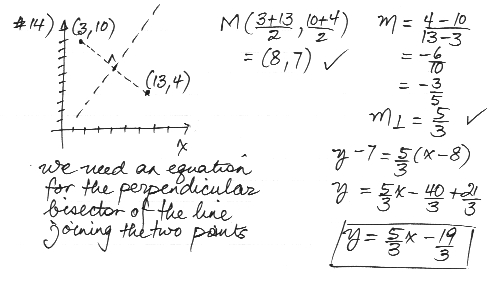 #14)
(3,10)
(13,4)
x
we need an equation
for the perpendicular
bisector of the line
joining the two points
M(3+13/2, 10+4/2)
= (8,7) ✓
m = 4-10/13-3
= -6/10
= -3/5
m⊥ = 5/3 ✓
y-7 = 5/3(x-8)
y = 5/3x - 40/3 + 21/3
y = 5/3x - 19/3